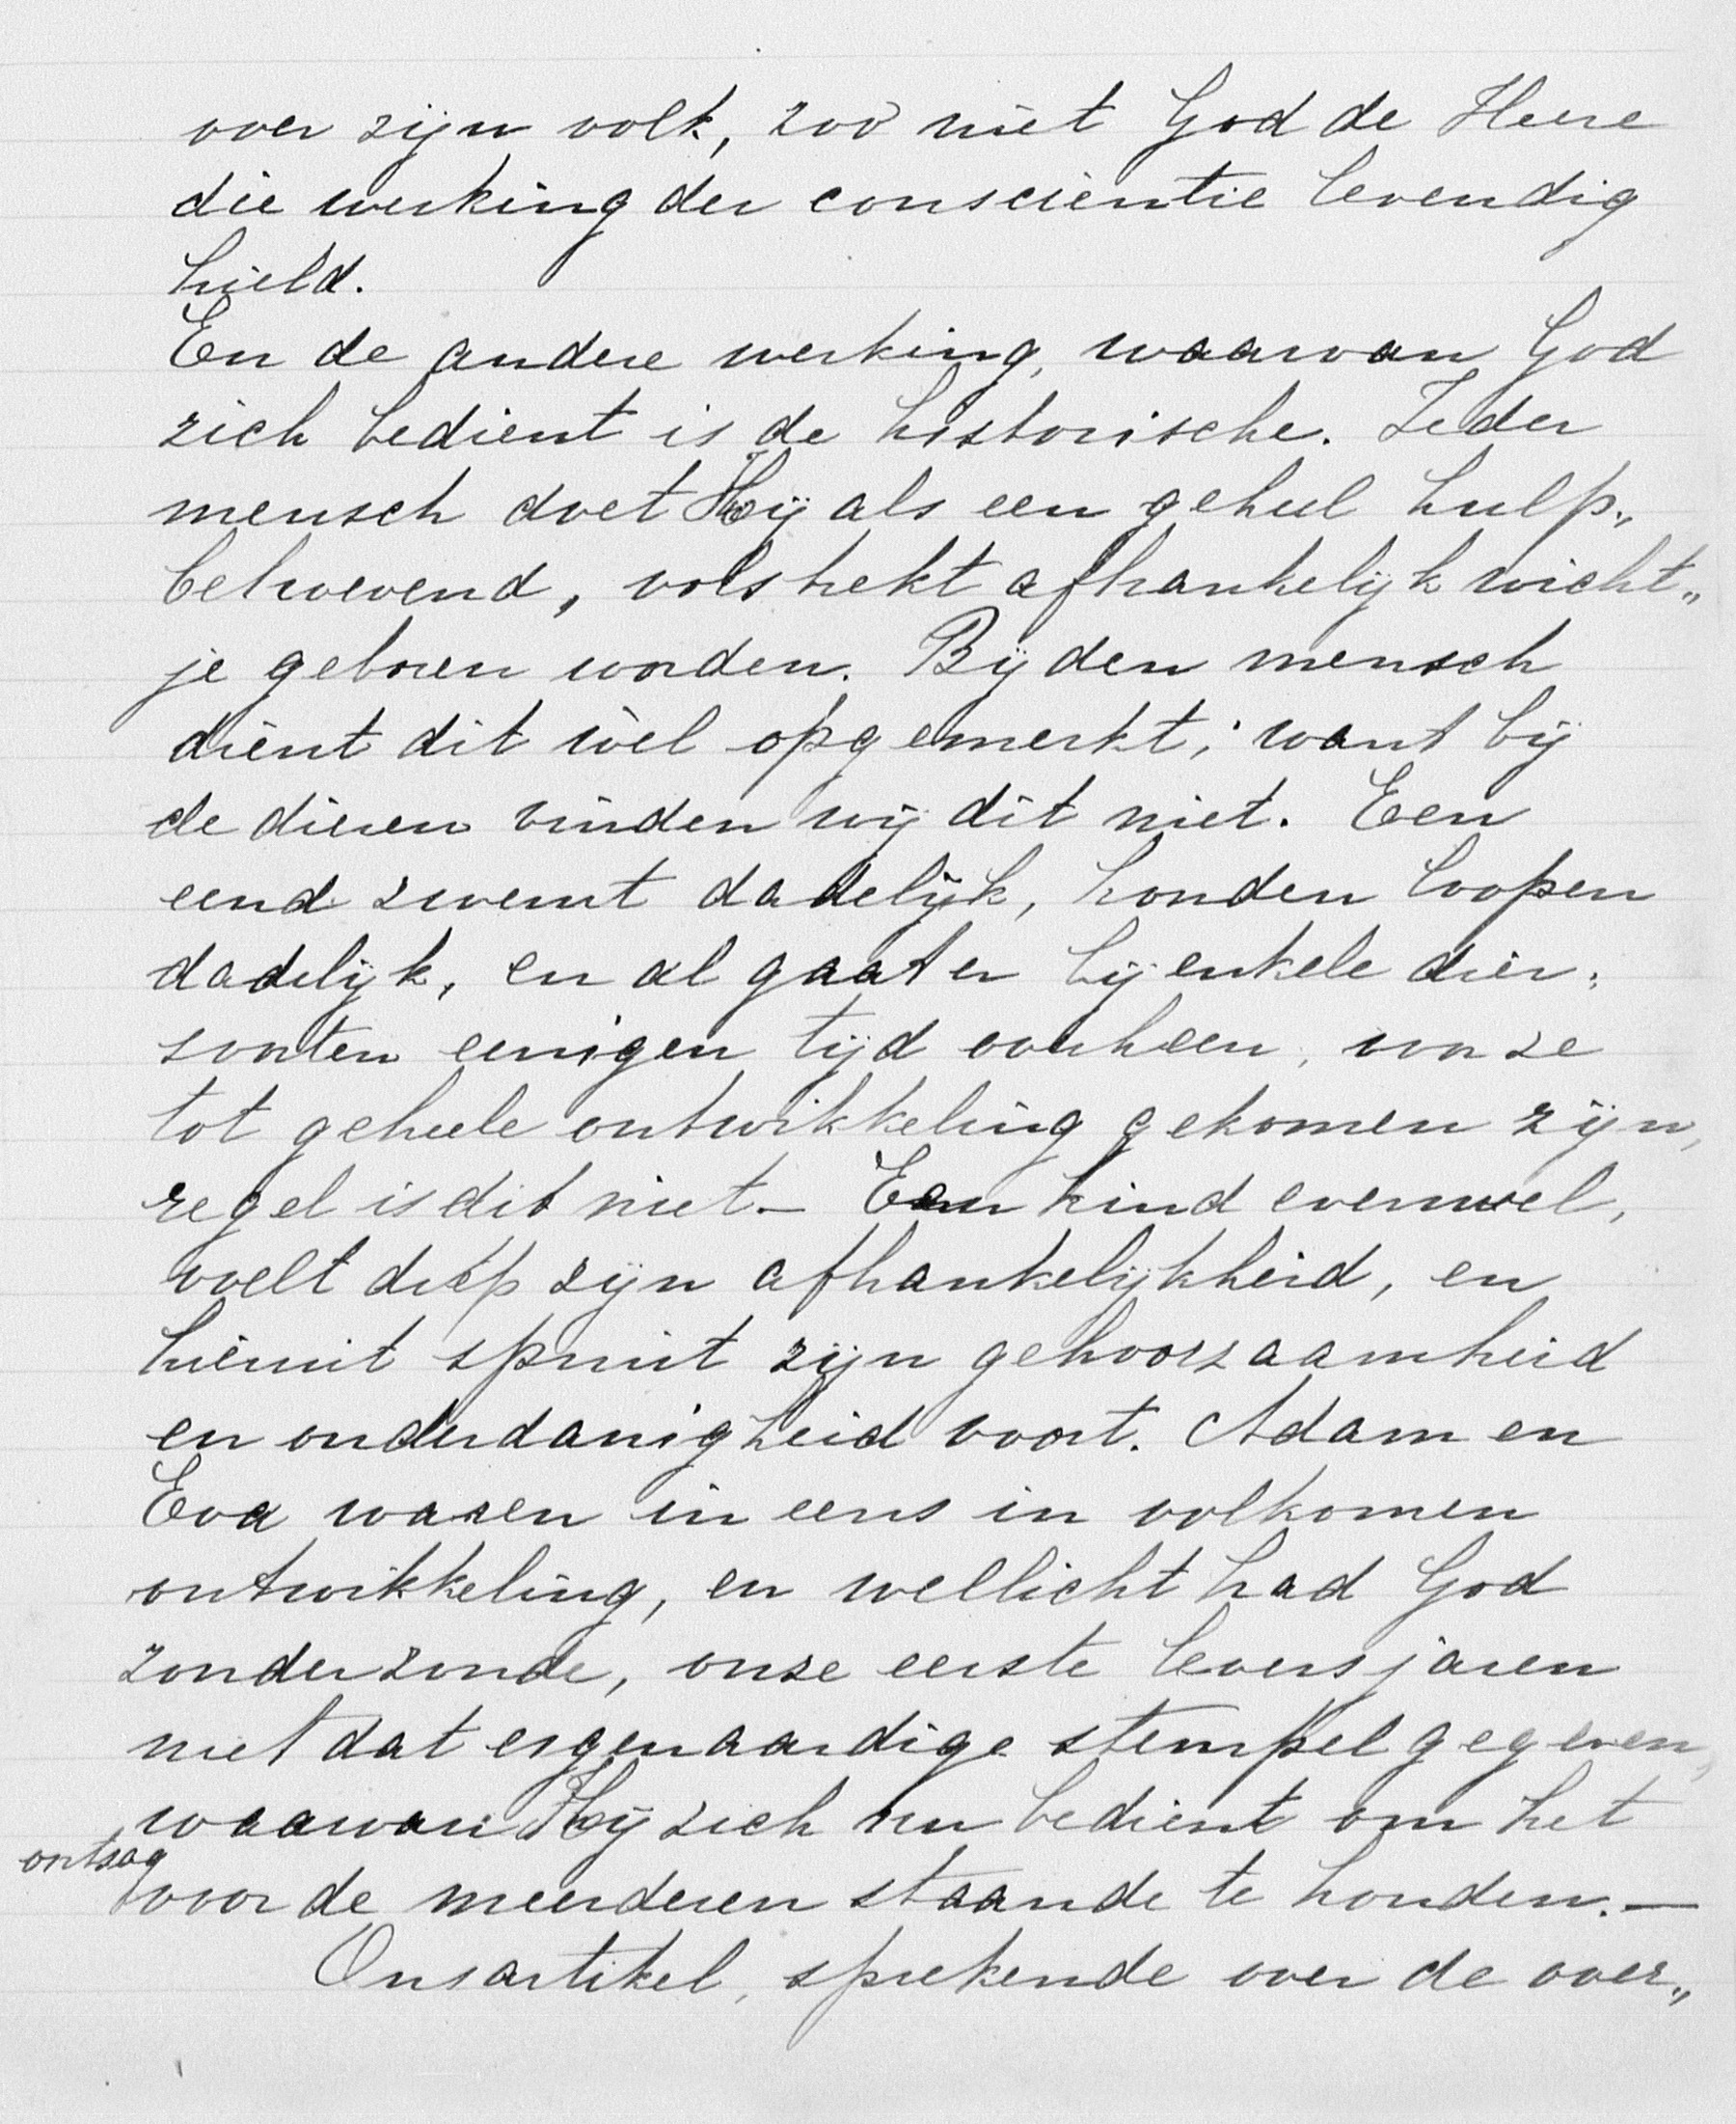 over zijn volk, zoo niet God de Heere
die werking der conscientie levendig
hield.
En de andere werking, waarvan God
zich bedient is de historische. Ieder
mensch doet Hij als een geheel hulp„
behoevend, volstrekt afhankelijk wicht„
je geboren worden. Bij den mensch
dient dit wèl opgemerkt; want bij
de dieren vinden wij dit niet. Een
eend zwemt dadelijk, honden loopen
dadelijk, en al gaat er bij enkele dier„
soorten eenigen tijd overheen, voor ze
tot geheele ontwikkeling gekomen zijn,
regel is dit niet. — Een kind evenwel,
voelt diep zijn afhankelijkheid, en
hieruit spruit zijn gehoorzaamheid
en onderdanigheid voort. Adam en
Eva waren in eens in volkomen
ontwikkeling, en wellicht had God
zonder zonde, onze eerste levensjaren
niet dat eigenaardige stempel gegeven,
waarvan Hij zich nu bedient om het
ontzag
voor de meerderen staande te houden. —
Ons artikel, sprekende over de over„